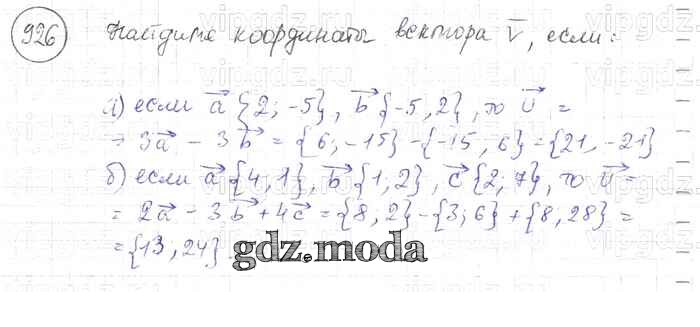 926 Найдите координаты вектора v⃗, если:
а) если a⃗ {2; -5}, b⃗ {-5, 2}, то v⃗ =
= 3a⃗ - 3b⃗ = {6; -15} - {-15, 6} = {21, -21}
б) если a⃗ {4, 1}, b⃗ {1, 2}, c⃗ {2, 7}, то v⃗ =
= 2a⃗ - 3b⃗ + 4c⃗ = {8, 2} - {3; 6} + {8, 28} =
= {13, 24}
gdz.moda